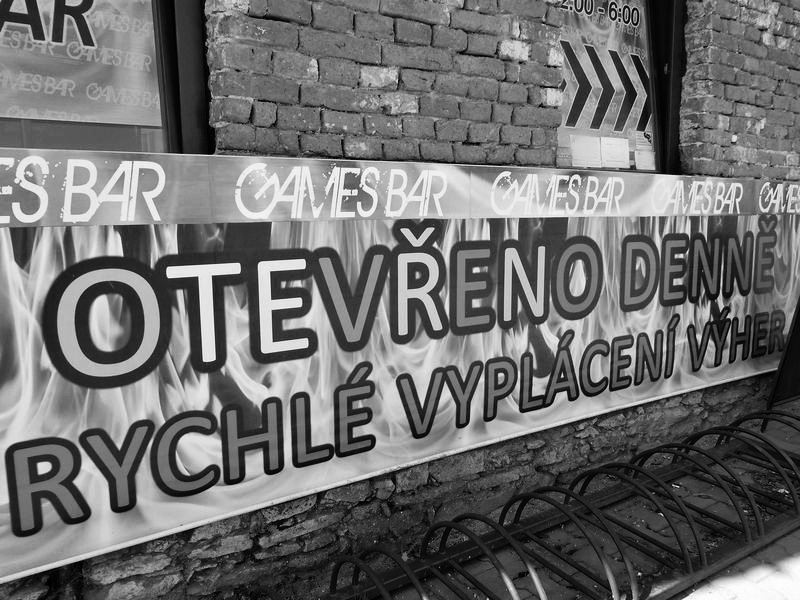 AR
GAMES BAR GAMES BAR
2:00 - 6:00
ES BAR GAMES BAR GAMES BAR GAMES BAR GAMES
OTEVŘENO DENNĚ
RYCHLÉ VYPLÁCENÍ VÝHER